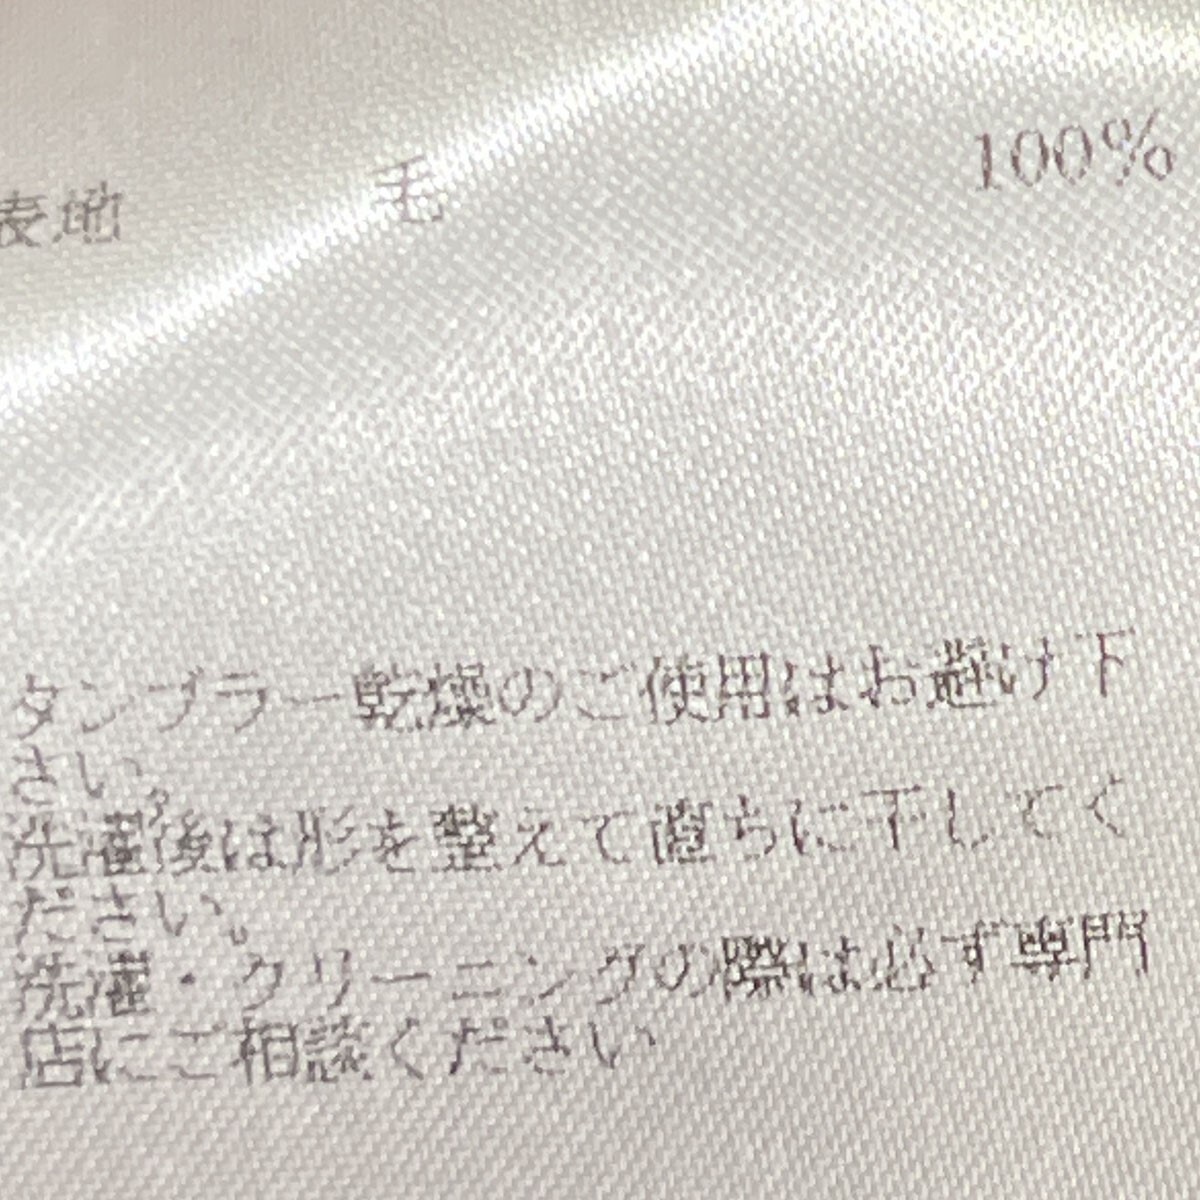 表地 毛 100%
タンブラー乾燥のご使用はお避け下
さい。
洗濯後は形を整えて直ちに干してく
ださい。
洗濯・クリーニングの際は必ず専門
店にご相談ください